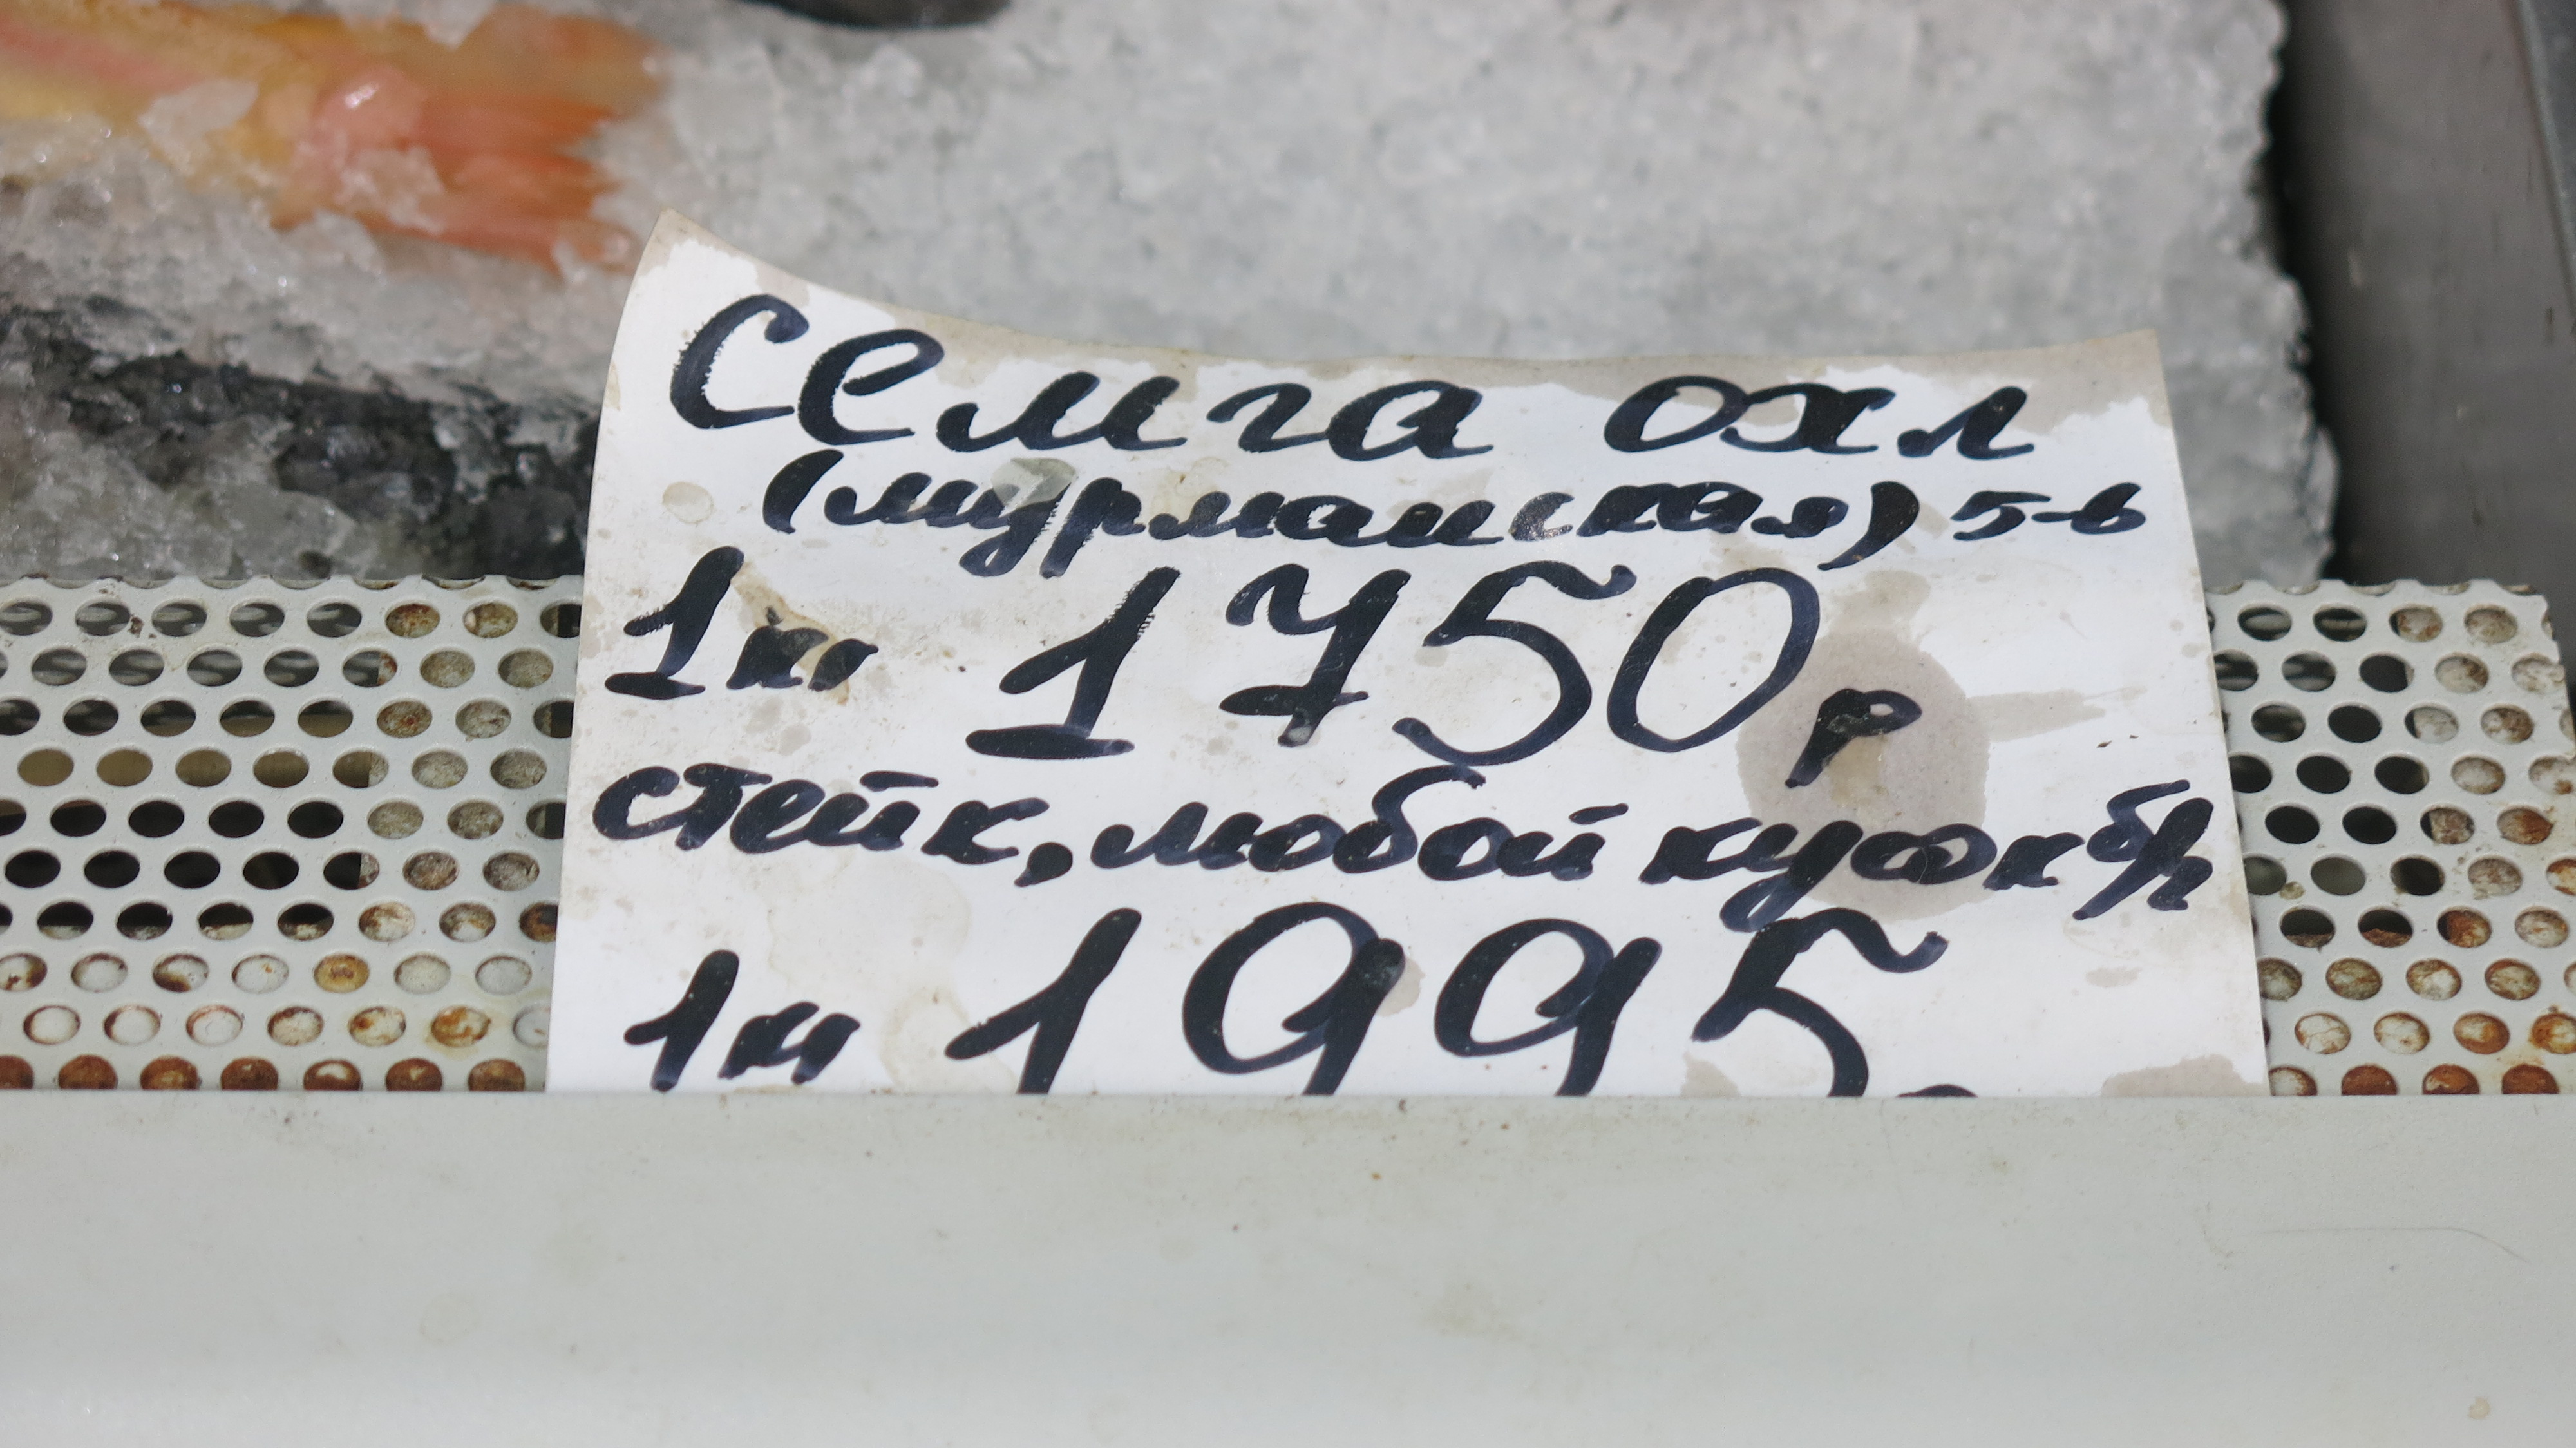 Семга охл
(мурманская) 5-6
1кг 1750р
стейк, любой кусок б/г
1кг 1995